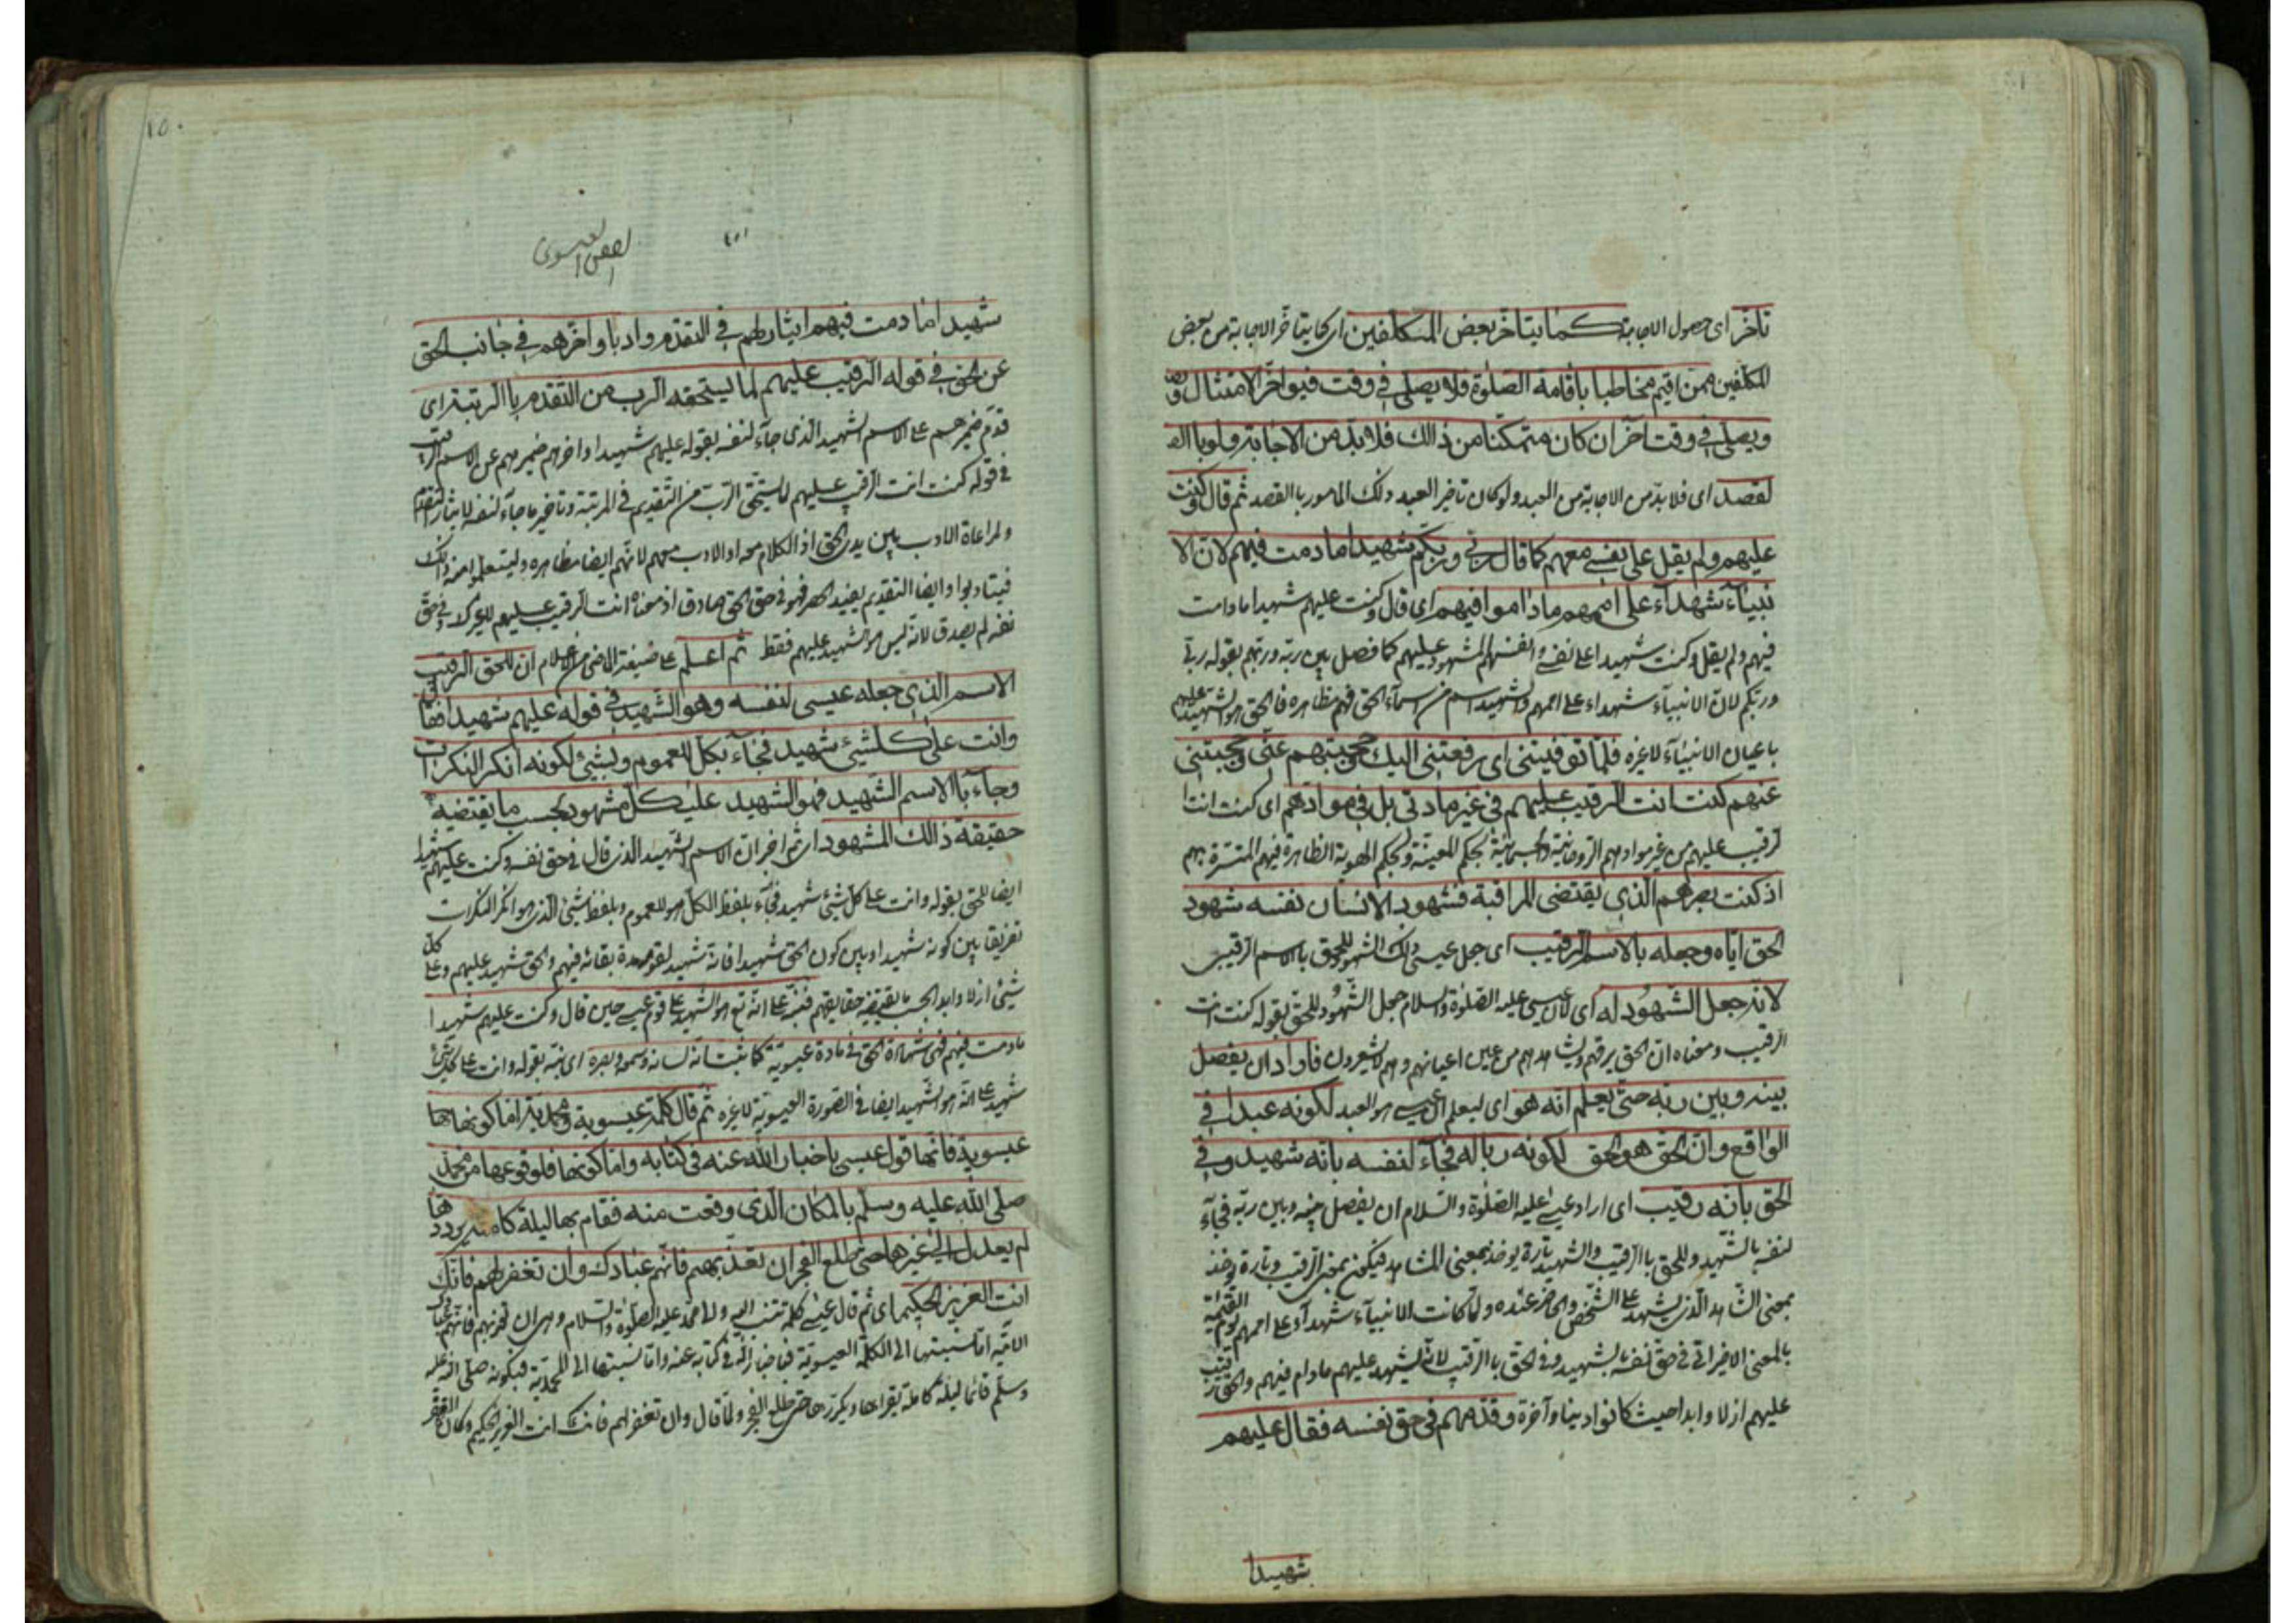 تأخر اى حصول الاجابة كما يتأخر بعض المكلفين اى كما يتأخر الاجابة من بعض
المكلفين ممن اقيم مخاطبا باقامة الصلوة فلا يصلى فى وقت فيؤاخر الامتثال
ويصلى فى وقت آخر ان كان متمكنا من ذالك فلا بد من الاجابة ولو باا
لقصد اى فلا بد من الاجابة من العبد ولو كان تأخر العبد ذلك المأمور باالقصد ثم قال وكنت
عليهم ولم يقل على نفسى معهم كما قال ربى وربكم شهيدا ما دمت فيهم لان الا
نبيآء شهدآء على اممهم ما داموا فيهم اى قال وكنت عليهم شهيدا ما دامت
فيهم ولم يقل وكنت شهيدا على نفسى وانفسهم المشهود عليهم كما فصل بين ربه وربهم بقوله ربى
وربكم لان الانبيآء شهداء على اممهم والشهيد اسم من اسمآء الحق فهم مظاهره فالحق هو الشهيد عليهم
باعيان الانبيآء لا غيره فلما توفيتنى اى رفعتنى اليك وحجبتهم عنى وحجبتنى
عنهم كنت انت الرقيب عليهم فى غير مادتى بل فى موادهم اى كنت انت ا
لرقيب عليهم من غير موادهم الروحانية والجسمانية بحكم المعية وبحكم الهوية الظاهرة فيهم المتسترة بهم
اذ كنت بصرهم الذى يقتضى المراقبة فشهود الانسان نفسه شهود
الحق اياه وجعله بالاسم الرقيب اى جعل عيسى ذلك الشهود للحق باسم الرقيب
لانه جعل الشهود له اى لان عيسى عليه الصلوة والسلام جعل الشهود للحق بقوله كنت انت
الرقيب ومعناه ان الحق يرقبهم ويشاهدهم من عين اعيانهم وهم لا يشعرون فاراد ان يفصل
بينه وبين ربه حتى يعلم انه هو اى ليعلم ان عيسى هو العبد لكونه عبدا فى
الواقع وان الحق هو الحق لكونه ربا له فجآء لنفسه بانه شهيد وفى
الحق بانه رقيب اى اراد عيسى عليه الصلوة والسلام ان يفصل بينه وبين ربه فجآء
لنفسه بالشهيد وللحق باالرقيب والشهيد تارة يوخذ بمعنى المشاهد فيكون بمعنى الرقيب وتارة يوخذ
بمعنى الشاهد الذى يشهد على الشخص والحاضر عنده ولما كانت الانبيآء شهدآء على اممهم يوم القيمة
بالمعنى الاخير اتى فى حق نفسه بالشهيد وفى الحق باالرقيب لانه يشهد عليهم ما دام فيهم والحق رقيب
عليهم ازلا وابدا حيث كانوا دنيا وآخرة وقدمهم فى حق نفسه فقال عليهم
شهيدا
١٥٠
الفص العيسوى
شهيدا ما دمت فيهم ايثارا لهم فى التقدم وادبا واخرهم فى جانب الحق
عن الحق فى قوله الرقيب عليهم لما يستحقه الرب من التقدم باالرتبة اى
قدم ضميرهم على الاسم الشهيد الذى جآء لنفسه بقوله عليهم شهيدا واخرهم ضميرهم عن الاسم الرقيب
فى قوله كنت انت الرقيب عليهم لما يستحق الرب من التقديم فى المرتبة وتأخير ما جآء لنفسه لايثار التقدم
ولمراعاة الادب بين يدى الحق اذ الكلام معه او الادب معهم لانهم ايضا مظاهره وليتعلموا منه ذلك
فيتأدبوا وايضا التقديم يفيد الحصر فهو فى حق الحق صادق اذ معناه انت الرقيب عليهم لا غيرك لا فى حق
نفسه لم يصدق لانه ليس هو الشهيد عليهم فقط ثم اعلم على صيغة الماضى من الاعلام ان للحق الرقيب
الاسم الذى جعله عيسى لنفسه وهو الشهيد فى قوله عليهم شهيدا فقال
وانت على كلشئ شهيد فجآء بكل للعموم وبشئ لكونه انكر النكرات
وجآء باالاسم الشهيد فهو الشهيد على كل مشهود بحسب ما يقتضيه
حقيقة ذالك المشهود اى ثم اخبر ان الاسم الشهيد الذى قال فى حق نفسه وكنت عليهم شهيدا
ايضا للحق بقوله وانت على كل شئ شهيد فجآء بلفظ الكل هو للعموم وبلفظ شئ الذى هو انكر النكرات
تفريقا بين كونه شهيدا وبين كون الحق شهيدا فانه شهيد لقومه مدة بقائه فيهم والحق شهيد عليهم وعلى كل
شئ ازلا وابدا بحسب ما يقتضيه حقايقهم فنبه على انه تع هو الشهيد على قوم عيسى حين قال وكنت عليهم شهيدا
ما دمت فيهم فهى شهادة الحق فى مادة عيسوية كما ثبت انه لسانه وسمعه وبصره اى نبه بقوله وانت على كل شئ
شهيد على انه هو الشهيد ايضا فى الصورة العيسوية لا غيره ثم قال كلمة عيسوية ومحمدية اما كونها
عيسوية فانها قول عيسى باخبار الله عنه فى كتابه واما كونها فلوقوعها من محمد
صلى الله عليه وسلم بالمكان الذى وقعت منه فقام بها ليلة كاملة يرددها
لم يعدل الى غيرها حتى طلع الفجر ان تعذبهم فانهم عبادك وان تغفر لهم فانك
انت العزيز الحكيم اى ثم قال عيسى كلمة تنتسب اليه والى محمد عليه الصلوة والسلام وهى ان تعذبهم فانهم عبادك
الآية اما نسبتها الى الكلمة العيسوية فباخبار الله فى كتابه عنه واما نسبتها الى المحمدية فبكونه صلى الله عليه
وسلم قائما ليلة كاملة يقراها ويكررها حتى طلع الفجر ولما قال وان تغفر لهم فانك انت العزيز الحكيم وكان